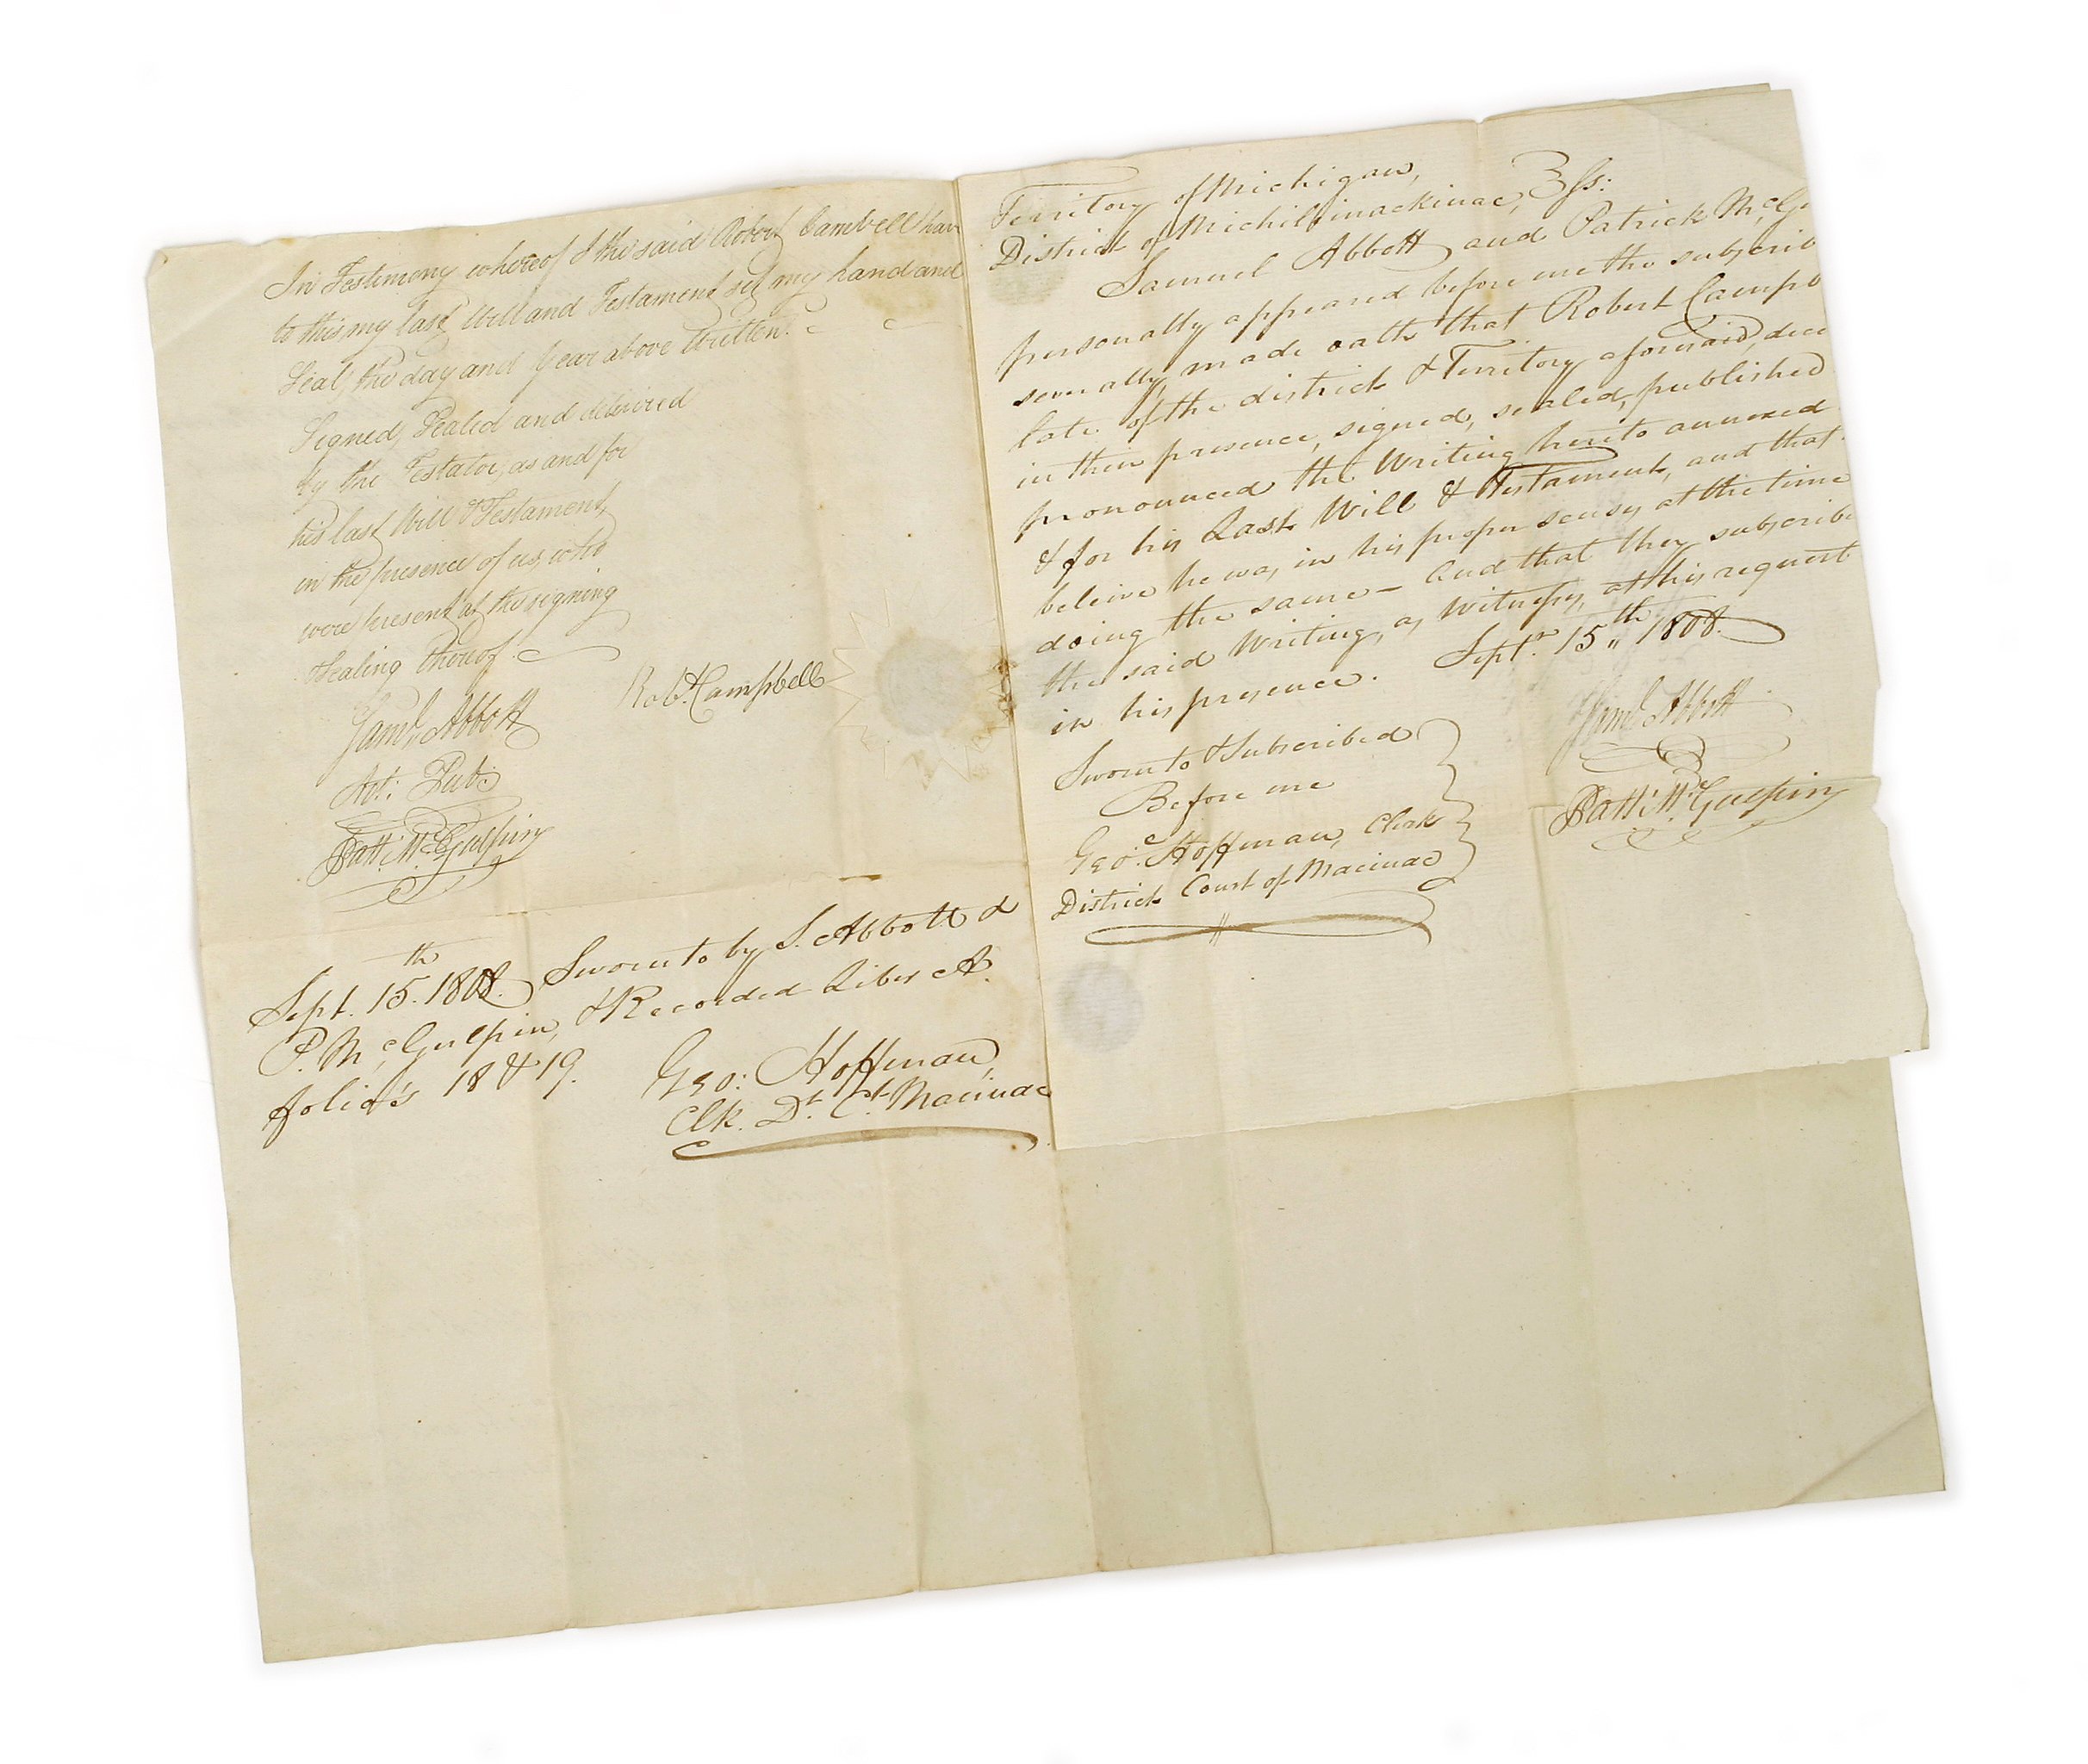 In Testimony whereof I the said Robert Cambell hav
to this my last Will and Testament set my hand and
Seal, the day and Year above Written.
Signed, Sealed and delivered
by the Testator, as and for
his last Will & Testament,
in the presence of us, who
were present at the signing
& Sealing thereof.
Saml. Abbott
Not: Pub:
Patt. McGulpin
Robt. Campbell
Sept. 15th. 1808. Sworn to by S. Abbott &
P. McGulpin, & Recorded Liber A.
folio's 18 & 19.
Geo: Hoffman,
Clk. Dt. Ct. Macinac
Territory of Michigan,
District of Michilimackinac, } ss:
Samuel Abbott and Patrick McG
personally appeared before me the subscrib
severally made oath that Robert Campb
late of the district & Territory aforesaid, dece
in their presence, signed, sealed, published
pronounced the Writing hereto annexed
& for his Last Will & Testament, and that
beleive he was in his proper senses at the time
doing the same – And that they subscribe
the said Writing, as Witnesses, at his request
in his presence. Septr. 15th 1808.
Sworn to & Subscribed
Before me
Geo: Hoffman, Clerk
District Court of Macinac
Saml Abbott
Patt. McGulpin